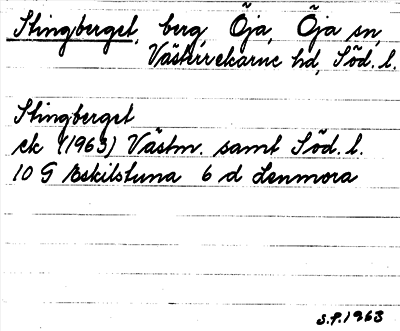 Stingberget, berg, Öja, Öja sn,
Västerrekarne hd, Söd. l.
Stingberget
ek (1963) Västm. samt Söd. l.
10 G Eskilstuna 6 d Lenmora
S.P. 1963